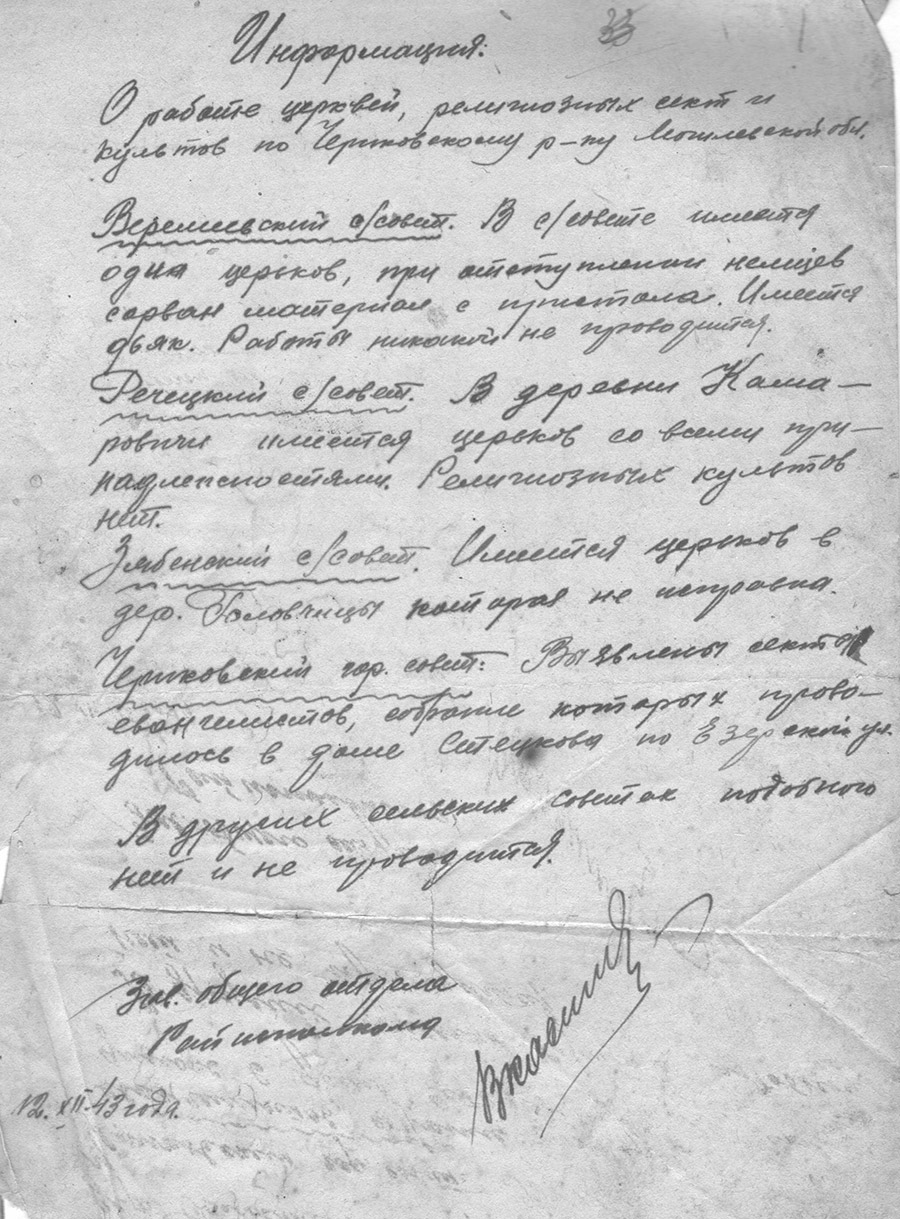 33
Информация:
О работе церквей, религиозных сект и
культов по Чериковскому р-ну Могилевской обл.
Веремиевский с/совет. В с/совете имеется
одна церьков, при отступлении немцев
сорван материал с пристола. Имеется
дьяк. Работы никакой не проводится.
Речецкий с/совет. В деревни Кама-
ровичи имеется церьков со всеми при-
надлежностями. Религиозных культов
нет.
Зябенский с/совет. Имеется церьков в
дер. Головчицы которая не исправна.
Чериковский гор. совет: Вызвлены секты
евангелистов, собрание которых прово-
дилось в доме Стецкова по Езерской ул.
В других сельских советах подобного
нет и не проводится.
Зав. общего отдела
Райисполкома
12.XII-43 года.